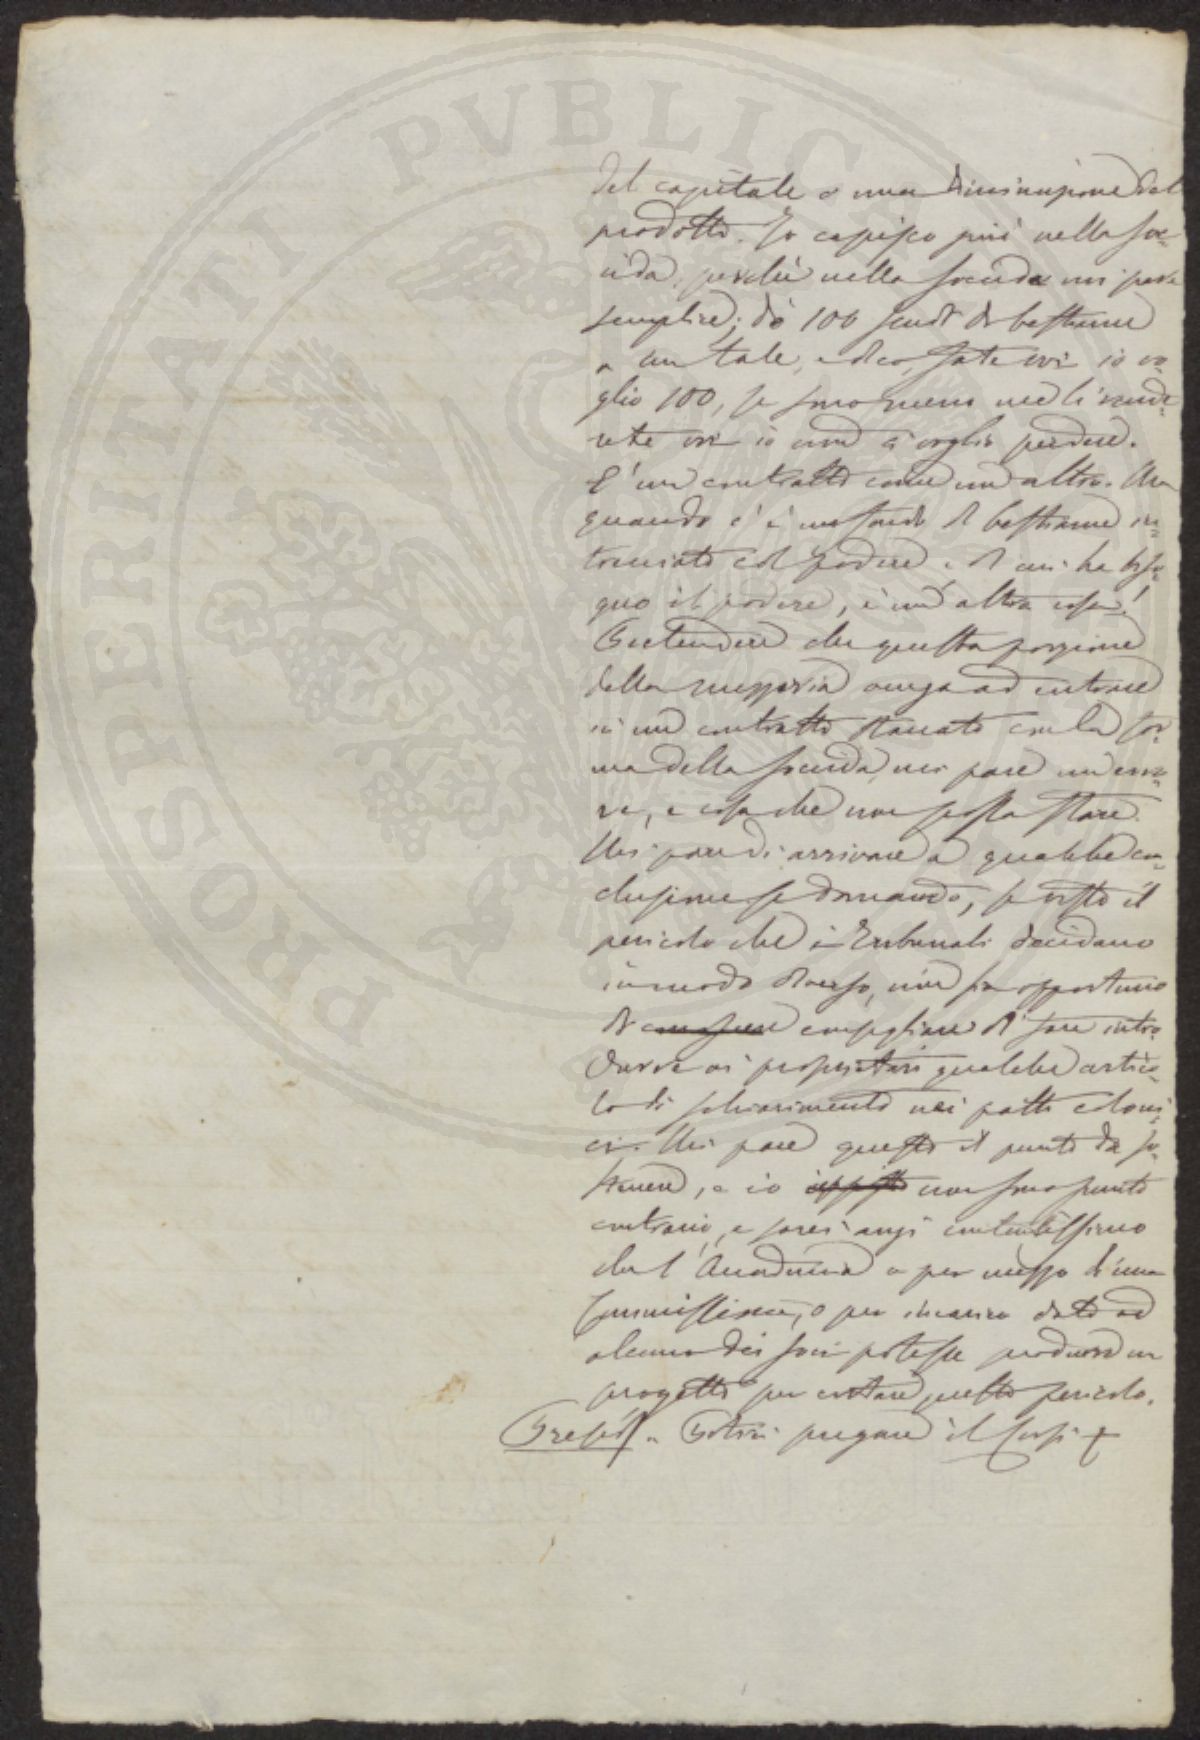 PROSPERITATI PVBLICAE
del capitale o una diminuzione del
prodotto. Io capisco più nella soc-
cida, perchè nella soccida mi pare
semplice; dò 100 scudi di bestiame
a un tale, e dico, fate voi io vo-
glio 100, se sono meno me li rende-
rete voi io non ci voglio perdere.
È un contratto come un altro. Ma
quando c'è un fondo di bestiame in-
trecciato col podere e di cui ha biso-
gno il podere, è un'altra cosa!
Pretendere che questa porzione
della mezzeria venga ad entrare
in un contratto staccato con la for-
ma della soccida, mi pare un erro-
re, e cosa che non possa stare.
Mi pare di arrivare a qualche con-
clusione se domando, se visto il
pericolo che i Tribunali decidano
in modo diverso, non sia opportuno
di consigliare di fare intro-
durre ai proprietari qualche artico-
lo di schiarimento nei patti coloni-
ci. Mi pare questo il punto da so-
stenere, e io non sono punto
contrario, e sarei anzi contentissimo
che l'Accademia o per mezzo di una
Commissione, o per incarico dato ad
alcuno dei soci potesse produrre un
progetto per evitare questo pericolo.
Presid. Potrei pregare il